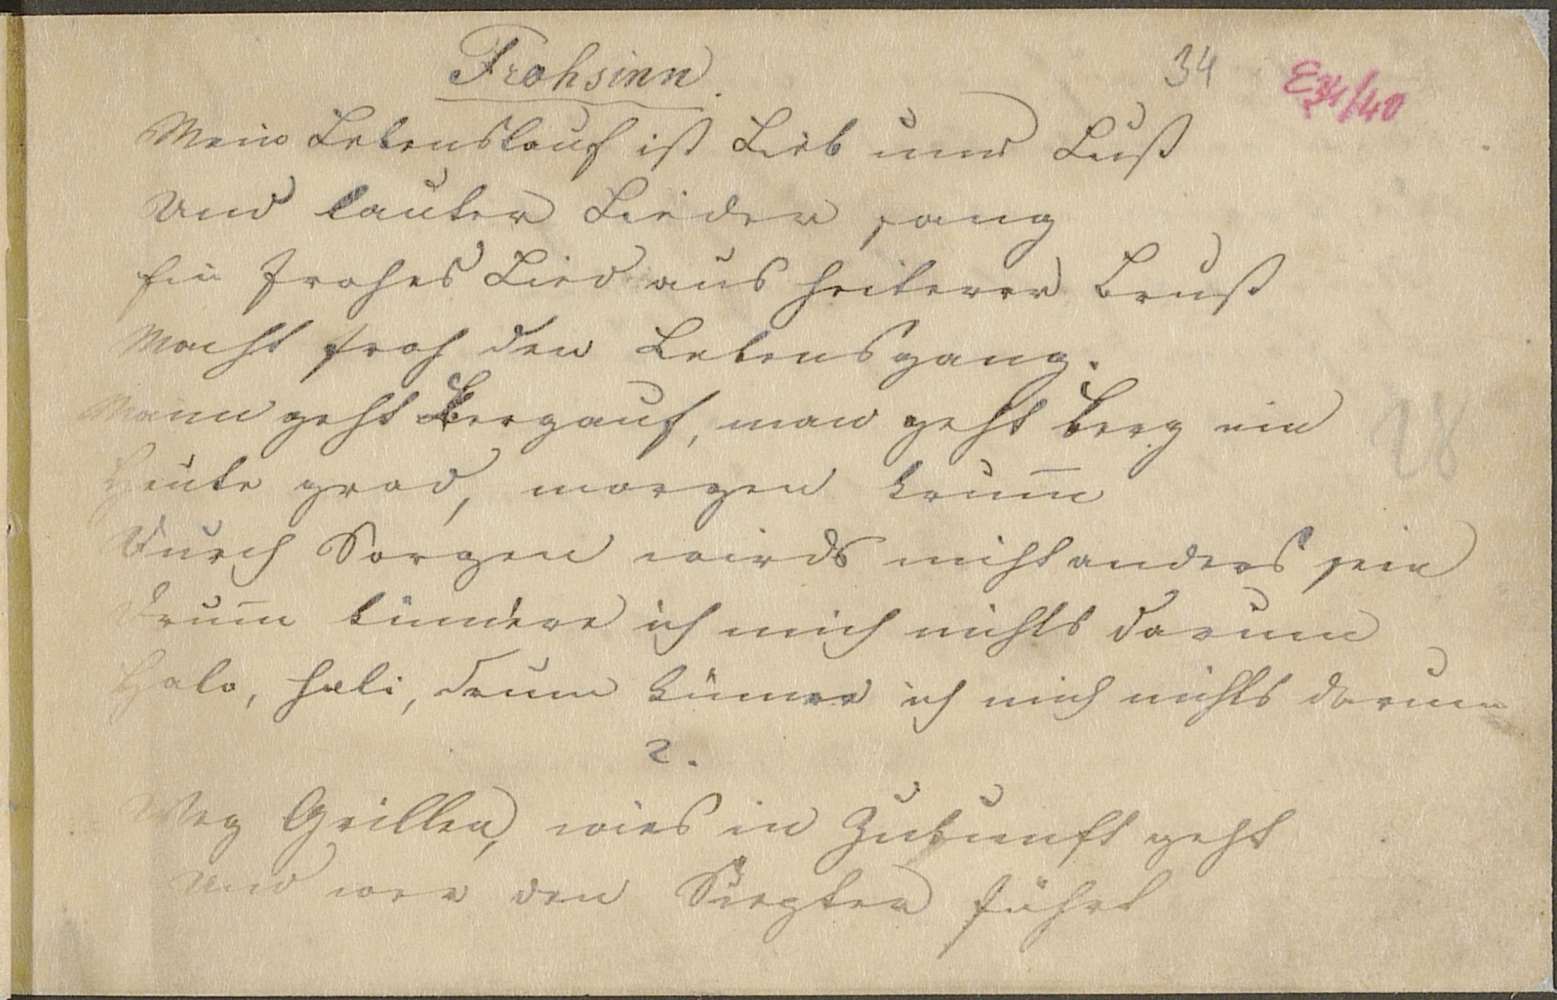 Frohsinn.
34
E34/40
Mein Lebenslauf ist Lieb und Lust
Und lauter Lieder sang
Ein frohes Lied aus heiterer Brust
Macht froh den Lebensgang.
Mann geht Bergauf, man geht berg ein
Heute grad, morgen krum̅
Durch Sorgen wirds nicht anders sein
Drum̅ kümere ich mich nichts darum
Halo, hali, drum kümre ich mich nichts darum
28
2.
Weg Grillen, wies in Zukunft geht
Und wer den führt